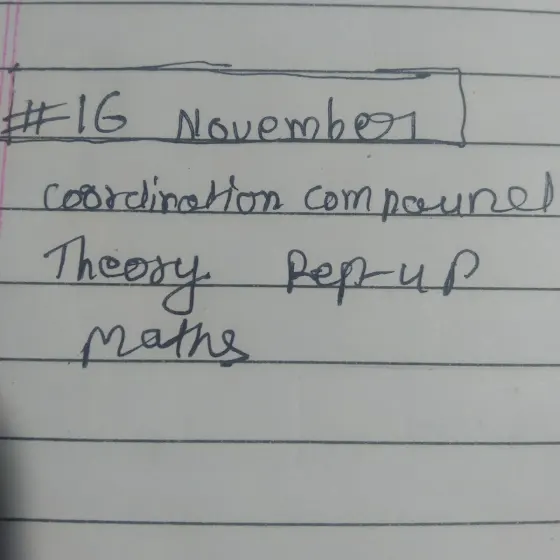 #16 November
Coordination Compound
Theory Rep-up
Maths